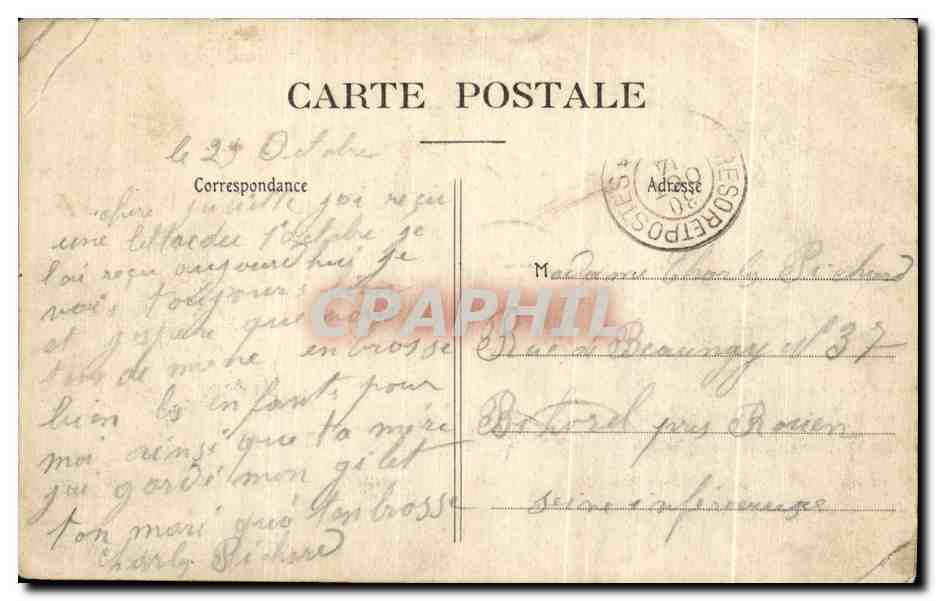 CARTE POSTALE
le 29 Octobre
Correspondance
Adresse
TRESOR ET POSTES
30
chère juliette jai reçu
une lettre du 1 octobre je
lai reçu aujourdhui je
vais toujours
et jespère que
tous de même enbrosse
bien les enfants pour
moi ainsi que ta mère
jai gardé mon gilet
ton mari qui tenbrosse
Charly Pichard
Madame Charly Pichard
Rue de Beauvoy N° 37
Bihorel près Rouen
seine inférieure
CPAPHIL